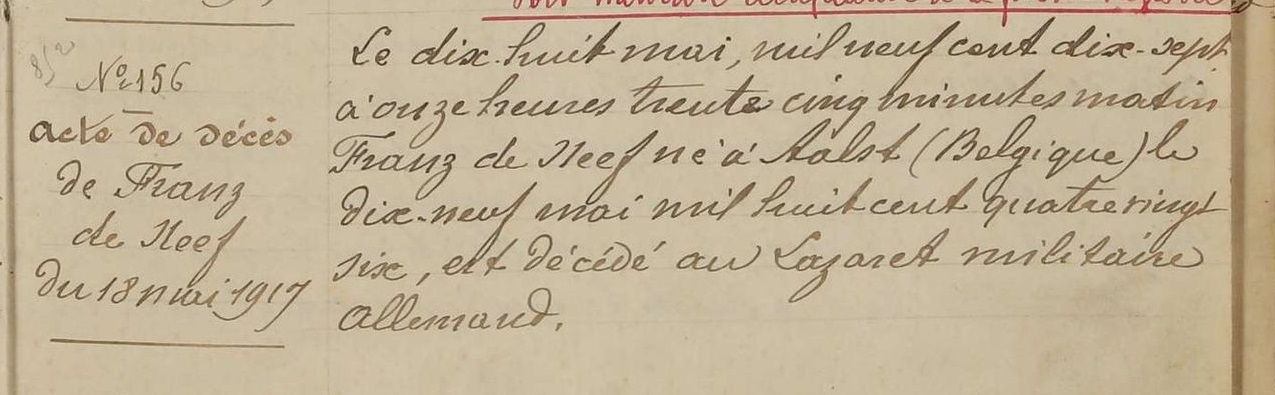 No 156
acte de décès
de Franz
de Neef
du 18 mai 1917
Le dix-huit mai, mil neuf cent dix-sept
à onze heures trente cinq minutes matin
Franz de Neef né à Aalst (Belgique) le
dix-neuf mai mil huit cent quatre vingt
six, est décédé au Lazaret militaire
allemand.